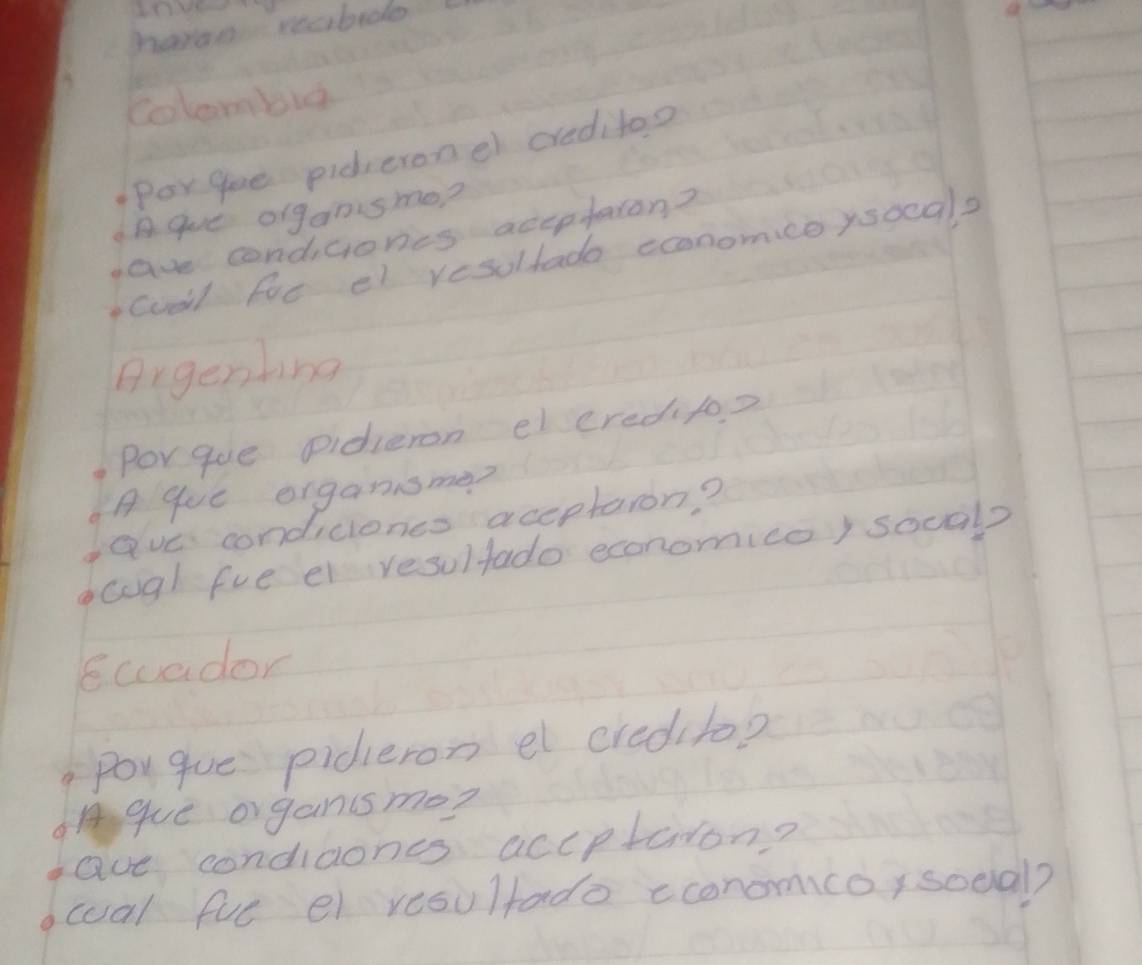 haran recibido
Colombia
. Por que pidieron el credito?
. A que organismo?
. Que condiciones aceptaron?
. Cuál fue el resultado economico y social?
Argentina
. Por que pidieron el credito?
. A que organismo?
. Que condiciones aceptaron?
. Cual fue el resultado economico y social?
Ecuador
. Por que pidieron el credito?
. A que organismo?
. Que condiciones acceptaron?
. Cual fue el resultado economico y social?